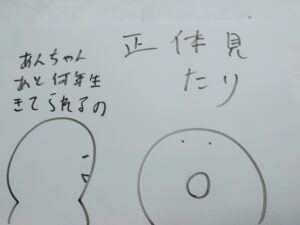 あんちゃん
あと何年生
きてられるの
正体見
たり